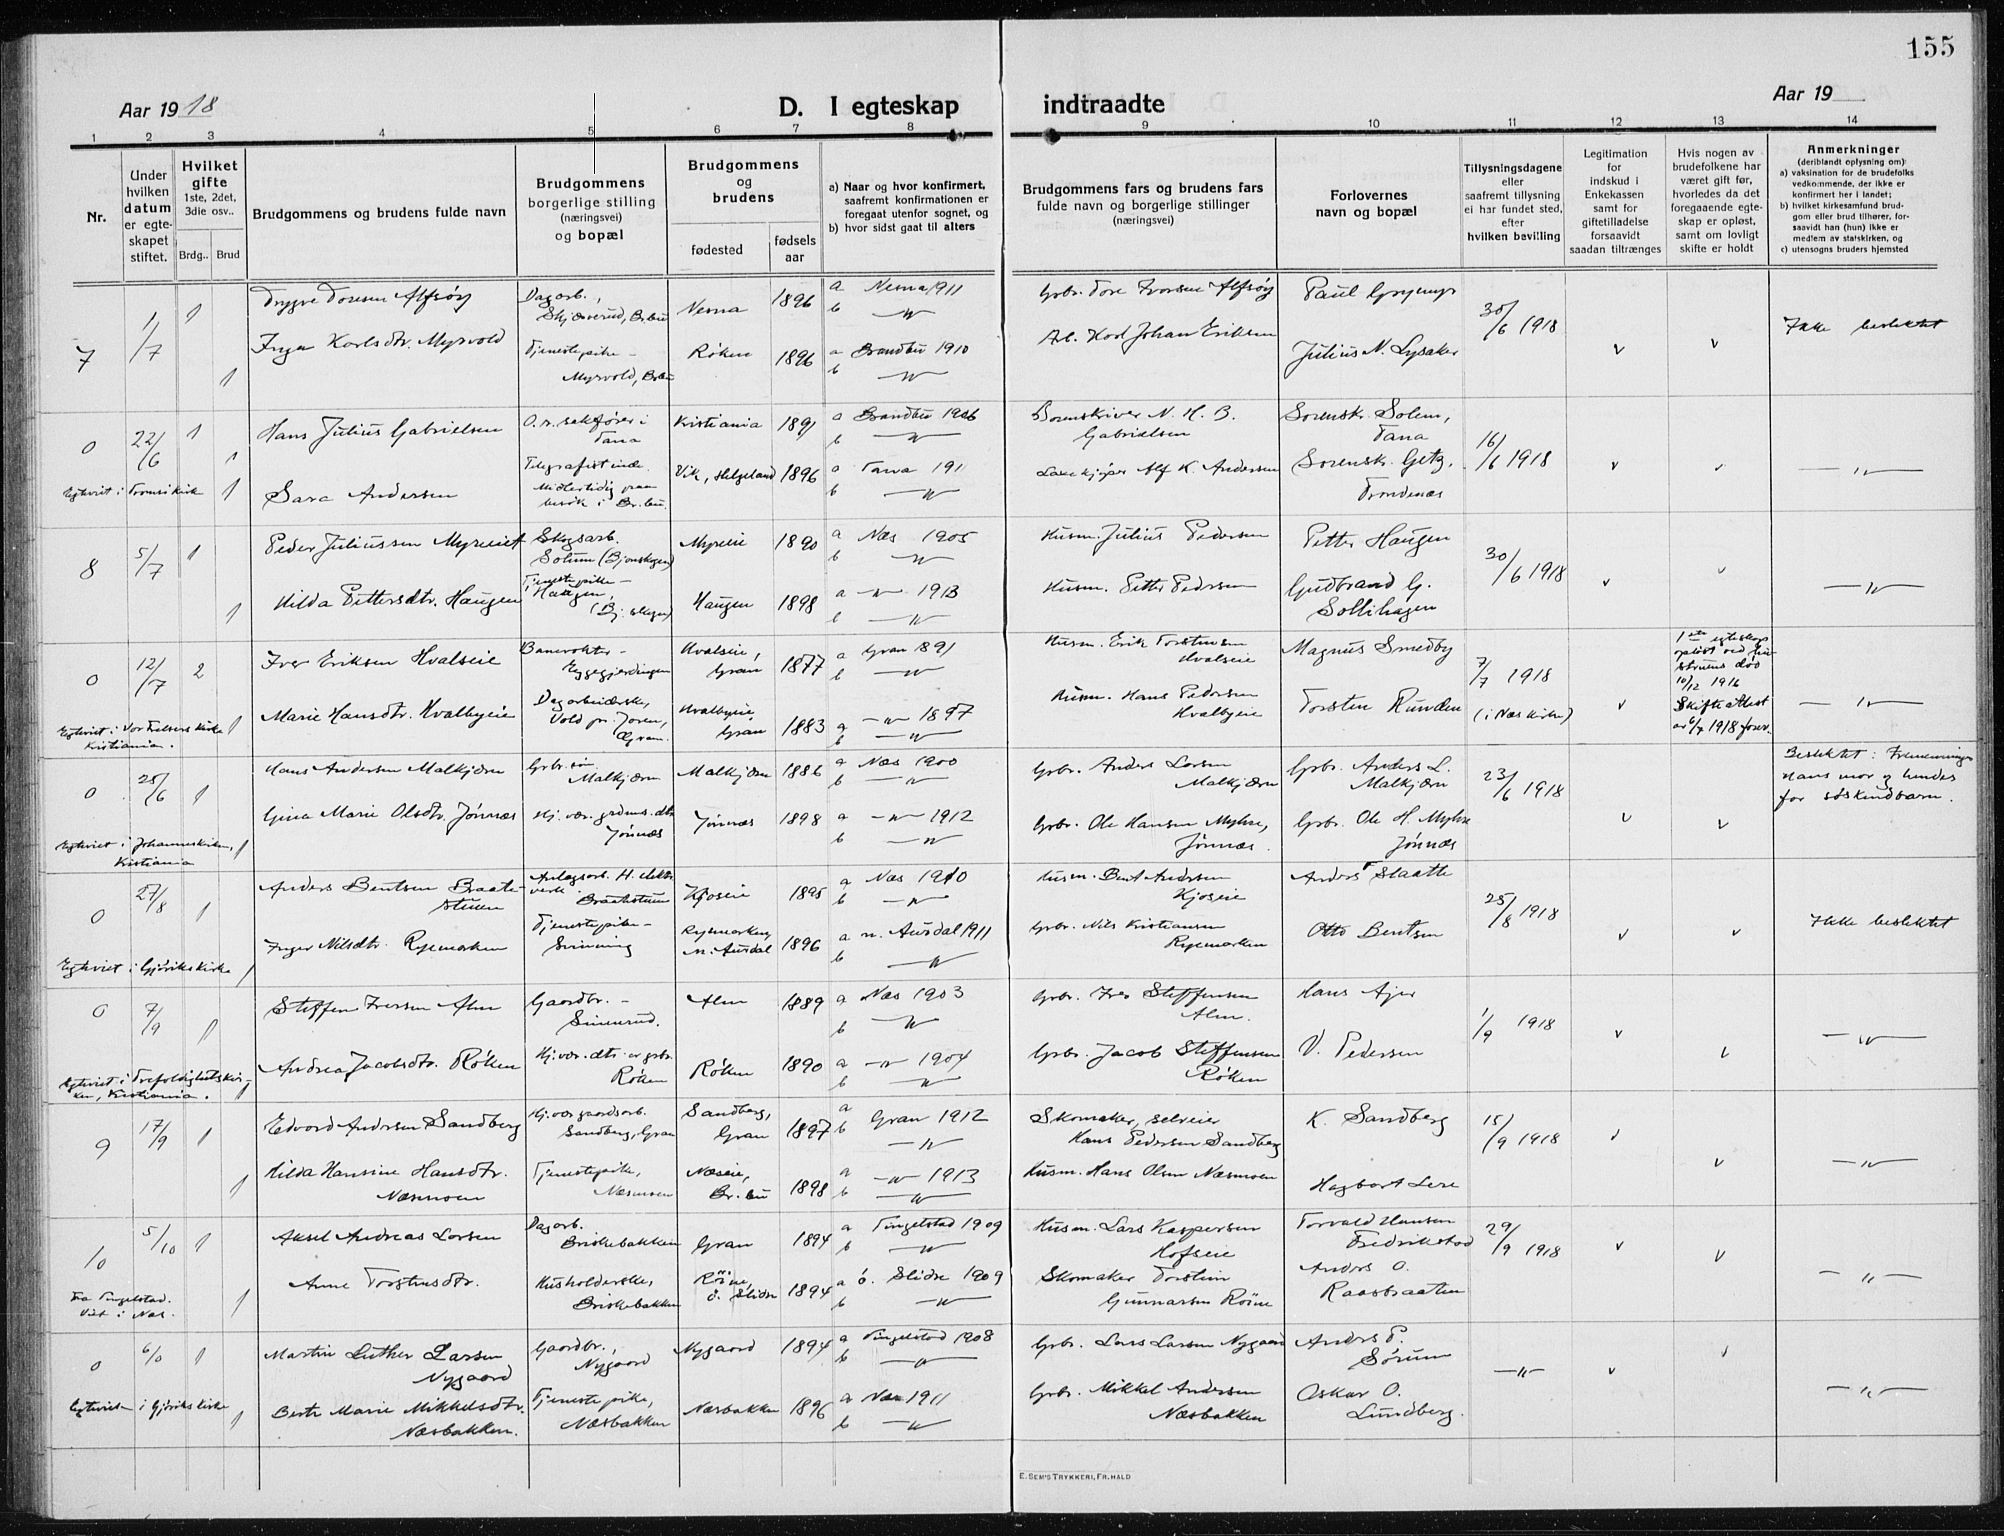 155
Aar 1918
D. I egteskap indtraadte
Aar 19
1 2 3 4 5 6 7 8 9 10 11 12 13 14
Nr.
Under hvilken datum er egteskapet stiftet.
Hvilket gifte 1ste, 2det, 3die osv..
Brdg.. Brud
Brudgommens og brudens fulde navn
Brudgommens borgerlige stilling (næringsvei) og bopæl
Brudgommens og brudens
fødested
fødsels aar
a) Naar og hvor konfirmert, saafremt konfirmationen er foregaat utenfor sognet, og
b) hvor sidst gaat til alters
Brudgommens fars og brudens fars fulde navn og borgerlige stillinger (næringsvei)
Forlovernes navn og bopæl
Tillysningsdagene eller saafremt tillysning ei har fundet sted, efter hvilken bevilling
Legitimation for indskud i Enkekassen samt for giftetilladelse forsaavidt saadan tiltrænges
Hvis nogen av brudefolkene har været gift før, hvorledes da det foregaaende egteskap er opløst, samt om lovligt skifte er holdt
Anmerkninger
(deriblandt oplysning om):
a) vaksination for de brudefolks vedkommende, der ikke er konfirmert her i landet;
b) hvilket kirkesamfund brudgom eller brud tilhører, forsaavidt han (hun) ikke er medlem av statskirken, og
c) utensogns bruders hjemsted
7 1/7 1 Trygve Toresen Alfsøy Dagarb., Nesna 1896 a Nesna 1911 Paul 30/6 1918 Ikke beslektet
b —"—
Inga Karlsdtr. Myrvold Tjenestepike – Myrvold, Br.bu Røken 1896 a Brandbu 1910 Arb. Karl Johan Eriksen Julius N. Lysaker
1 b —"—
0 22/6 1 Hans Julius Gabrielsen O.r. sakfører i Tana Kristiania 1891 a Brandbu 1906 Sorenskriver N. H. B. Gabrielsen Sorenskr. Solem, Tana 16/6 1918 —"—
b —"—
Egteviet i Tromsø kirk 1 Sara Andersen Telegrafistinde. Midlertidig paa besøk i Br.bu. Vik, Helgeland 1896 a Tana 191 Alf K. Andersen Sorenskr. Getz, Trondenæs
b —"—
8 5/7 1 Peder Juliussen Myreiet Skogsarb. Solum (Bjonskogen) Myreie 1890 a Næs 1905 Husm. Julius Pedersen Petter Haugen 30/6 1918
b —"—
1 Hilda Pettersdtr. Haugen Tjenestepike – Haugen, (Bj. skogen) Haugen 1898 a —"— 1913 Husm. Petter Pedersen Gudbrand G. Sollihagen —"—
b —"—
0 12/7 2 Iver Eriksen Hvalseie Banevokter – Eggegjerdingen Hvalseie, Gran 1877 a Gran 891 Husm. Erik Torstensen Hvalseie Magnus Smedby 7/7 1918 1ste egteskap opløst ved hustruens død 10/12 1916 Skifteattest av 6/7 1918 forev.
b —"—
Egteviet i Vor Frelsers Kirke Kristiania. 1 Marie Hansdtr. Hvalbyeie Dagarbeiderske, Vold pr. Jaren, Gran Hvalbyeie, Gran 1883 a —"— 1897 Husm. Hans Pedersen Hvalbyeie Torsten Runden (i Næs kirke) —"—
b —"—
0 25/6 1 Hans Andersen Malkjærn Grbr.søn Malkjærn Malkjærn 1886 a Næs 1900 Grbr. Anders Larsen Malkjærn Grbr. Anders L. Malkjærn 23/6 1918 Beslektet: hans mor og hendes far søskendbarn.
b —"—
Egteviet i Johanneskirken, Kristiania 1 Gina Marie Olsdtr. Jønnæs Hj.vær. grdmds. dtr. Jønnæs Jønnæs 1898 a —"— 1912 Grbr. Ole Hansen Myhre, Jønnæs. Grbr. Ole H. Myhre Jønnæs
b —"—
0 27/8 1 Anders Bentsen Braatestuen Anlægsarb. H. elektr. verk. Braatestuen Kjoseie 1895 a Næs 1910 Husm. Bent Andersen Kjoseie Anders Slaatte 25/8 1918 Ikke beslektet
b —"—
Egteviet i Gjøviks kirke 1 Inger Nilsdtr. Rypemarken Tjenestepike – Svinning Rypemarken, n. Aurdal 1896 a n. Aurdal 1911 Grbr. Nils Kristiansen Rypemarken Otto Bentsen
b —"—
0 7/9 1 Steffen Iversen Alm Gaardbr. – Simerud. Alm 1889 a Næs 1903 Grbr. Iver Steffensen Alm. Hans Ajer 1/9 1918 —"—
b —"—
Egteviet i Trefoldighetskirken, Kristiania. 1 Andrea Jacobsdtr. Røken Hj.vær. dtr. av grbr. Røken Røken 1890 a —"— 1904 Grbr. Jacob Steffensen Røken V. Pedersen
b —"—
9 17/9 1 Edvard Andersen Sandberg Hj.vær gaardsarb. Sandberg, Gran Sandberg, Gran 1897 a Gran 1912 Skomaker, selveier Hans Pedersen Sandberg K. Sandberg 15/9 1918
b —"—
1 Hilda Hansine Hansdtr. Næsmoen Tjenestepike, Næsmoen Næseie, Br.bu 1898 a —"— 1913 Husm. Hans Olsen Næsmoen Hagbart Lere —"—
b —"—
10 5/10 1 Aksel Andreas Larsen Dagarb. Briskebakken Gran 1894 a Tingelstad 1909 Husm. Lars Kaspersen Hofseie Torvald Hansen Fredrikstad 29/9 1918
b —"—
Fra Tingelstad. Viet i Næs. 1 Anne Torstensdtr. Husholderske, Briskebakken Røine, ø. Slidre 1894 a ø. Slidre 1909 Skomaker Torstein Gunnarsen Røine Anders O. Raasbraaten —"—
b —"—
0 6/0 1 Martin Luther Larsen Nygaard Gaardbr., Nygaard Nygaard 1894 a Tingelstad 1908 Grbr. Lars Larsen Nygaard Anders P. Sørum —"—
b —"—
Egteviet i Gjøviks kirke 1 Berte Marie Mikkelsdtr. Næsbakken. Tjenestepike, Næsbakken Næsbakken 1896 a Næs 1911 Grbr. Mikkel Andersen Næsbakken Oskar O. Lundberg. —"—
b —"—
E. SEM'S TRYKKERI, FR. HALD